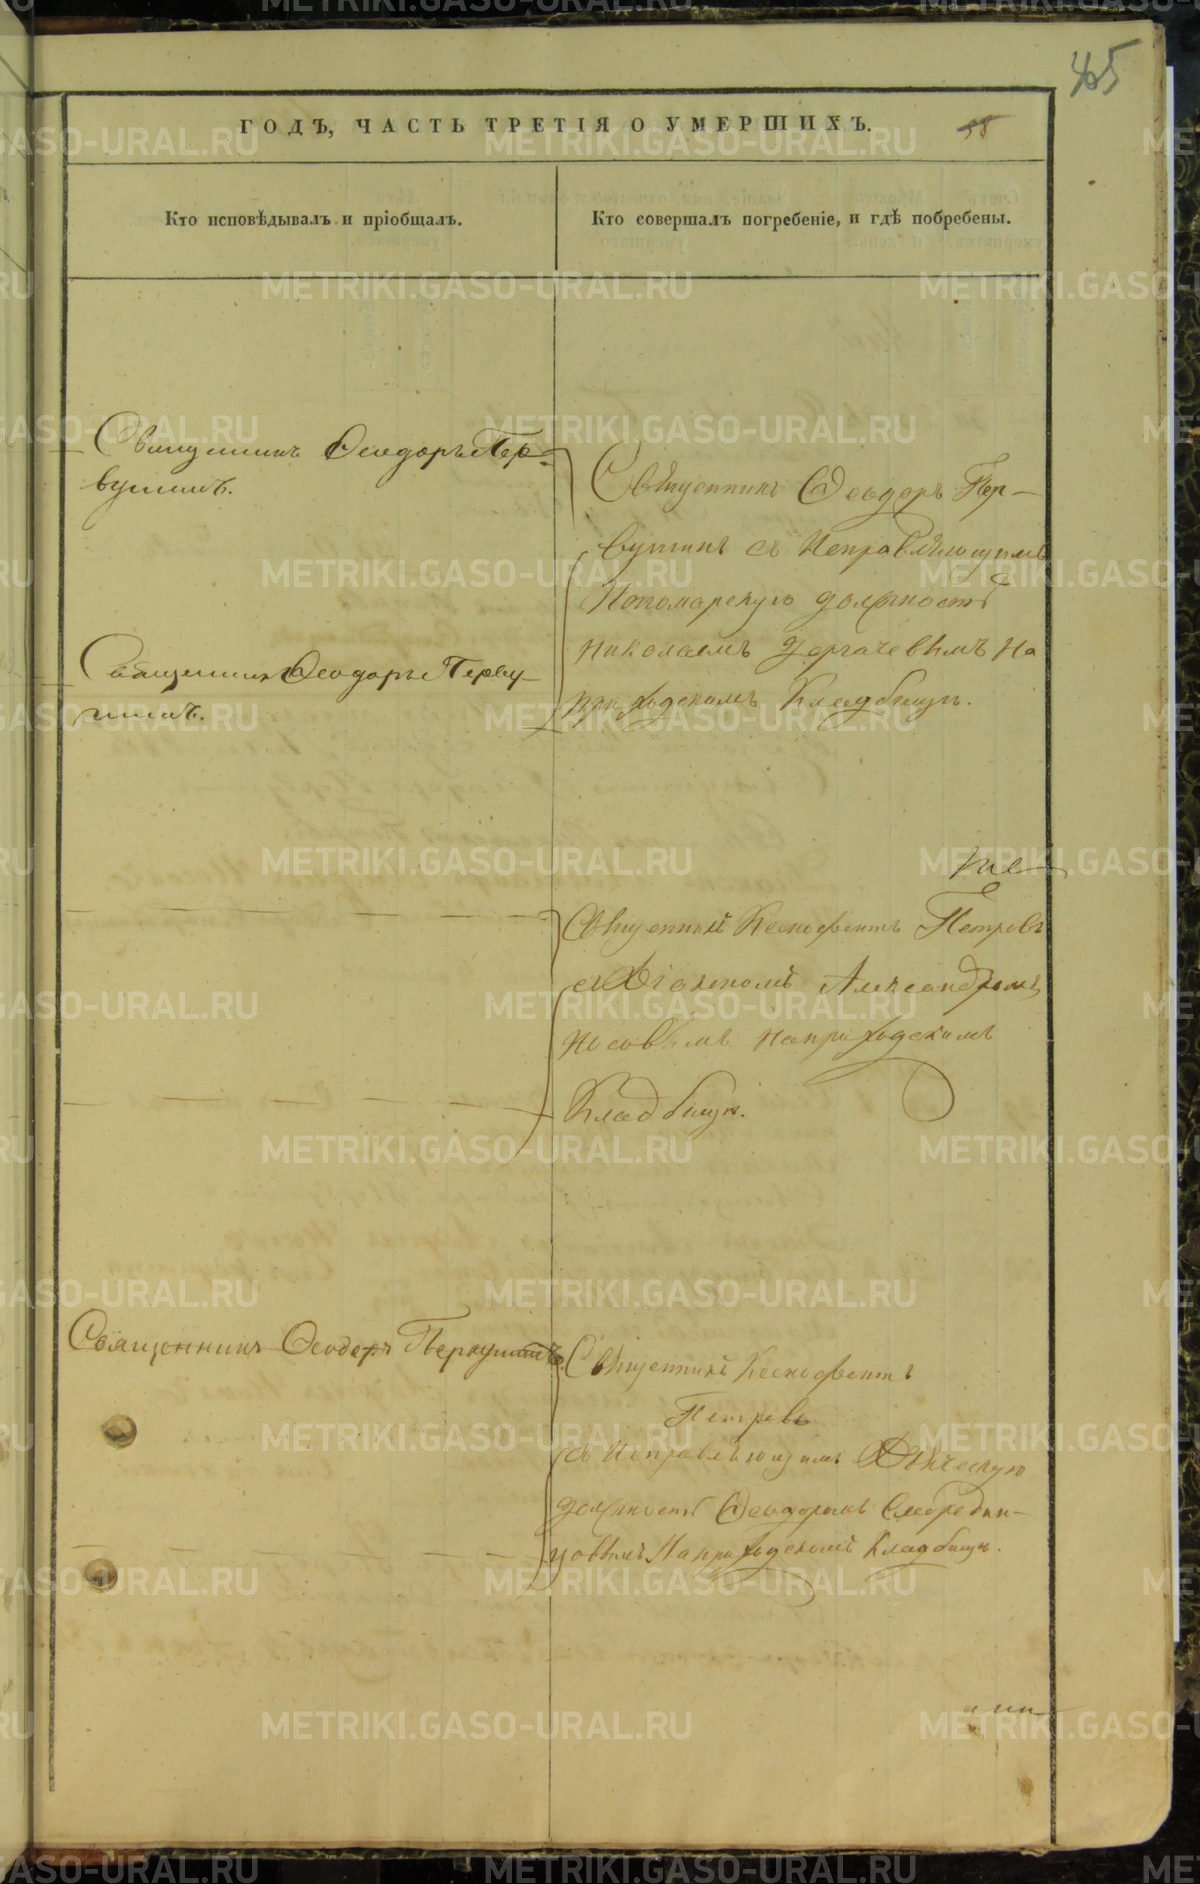 465
ГОДЪ, ЧАСТЬ ТРЕТІЯ О УМЕРШИХЪ.
58
Кто исповѣдывалъ и пріобщалъ.
Кто совершалъ погребеніе, и гдѣ побребены.
Священникъ Ѳеодоръ Пер-
вушинъ.
Священникъ Ѳеодоръ Пер-
вушинъ съ Исправляющимъ
Пономарскую должность
Николаемъ Дергачевымъ На
приходскомъ Кладбищѣ.
Священникъ Ѳеодоръ Перву-
шинъ.
Священникъ Ксенофонтъ Петровъ
съ Діакономъ Александромъ
Носовымъ На приходскомъ
Кладбищѣ.
Священникъ Ѳеодоръ Первушинъ.
Священникъ Ксенофонтъ
Петровъ
съ Исправляющимъ Дьяческую
должность Ѳеодоромъ
На приходскомъ Кладбищѣ.
METRIKI.GASO-URAL.RU